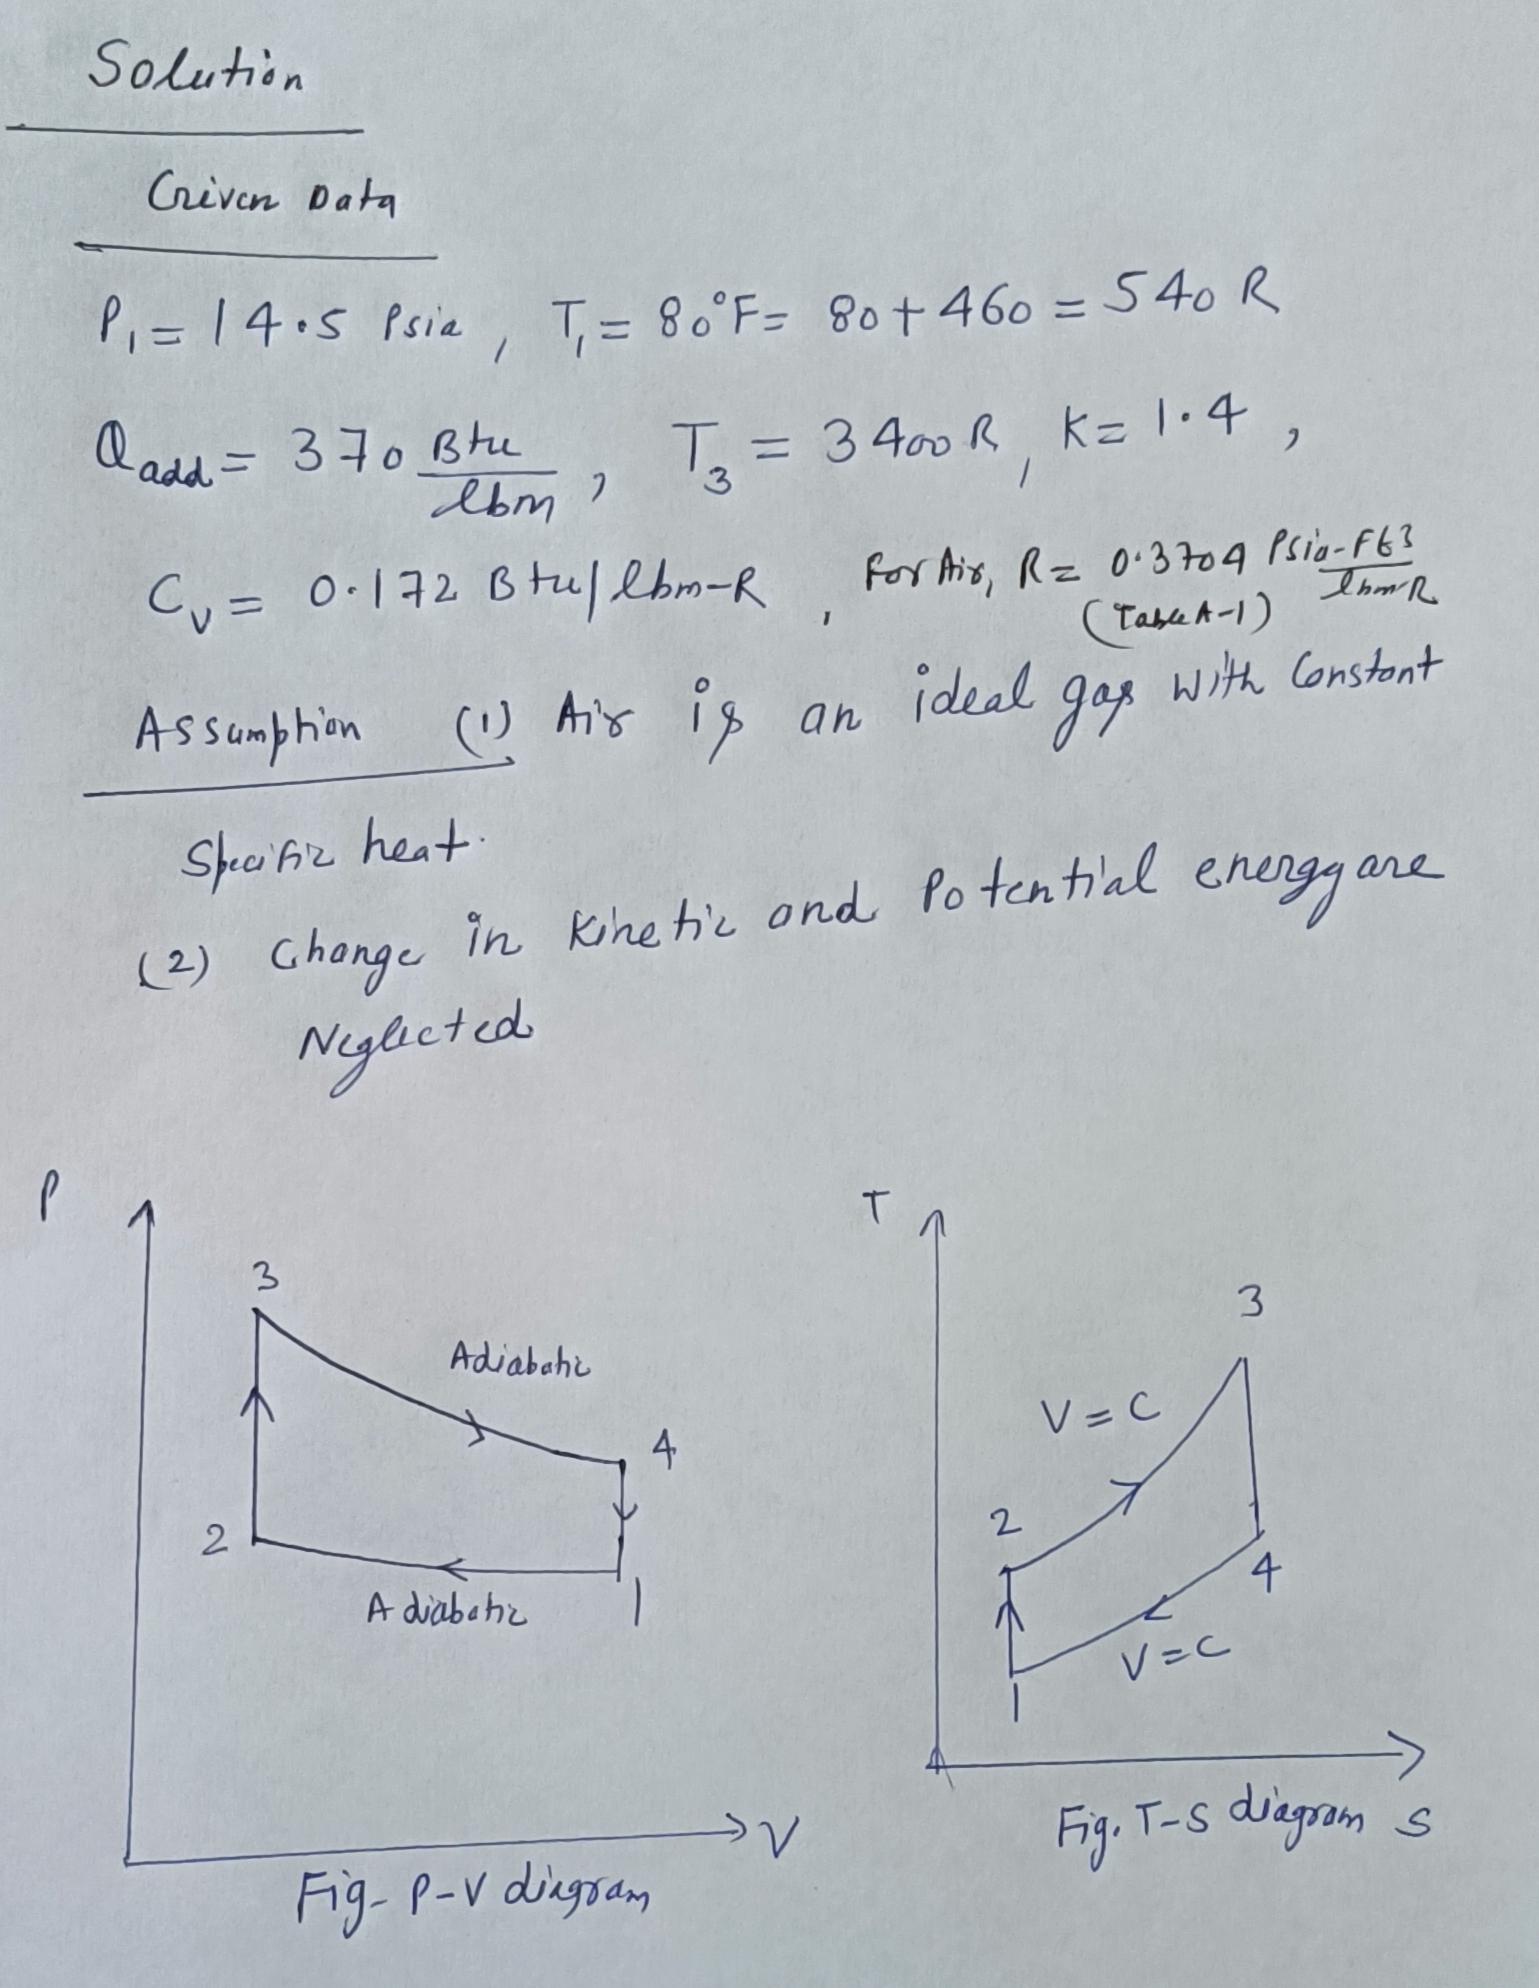 Solution
Given Data
P₁ = 14.5 Psia, T₁ = 80°F = 80 + 460 = 540 R
Qadd = 370 Btu/lbm, T₃ = 3400 R, K = 1.4,
Cv = 0.172 Btu/lbm-R, For Air, R = 0.3704 Psia-Ft3/lbm R
(Table A-1)
Assumption (1) Air is an ideal gas with Constant
Specific heat.
(2) Change in Kinetic and Potential energy are
Neglected
P
3
Adiabatic
4
2
Adiabatic
1
V
Fig- P-V diagram
T
3
V = C
2
4
V = C
1
Fig. T-S diagram S